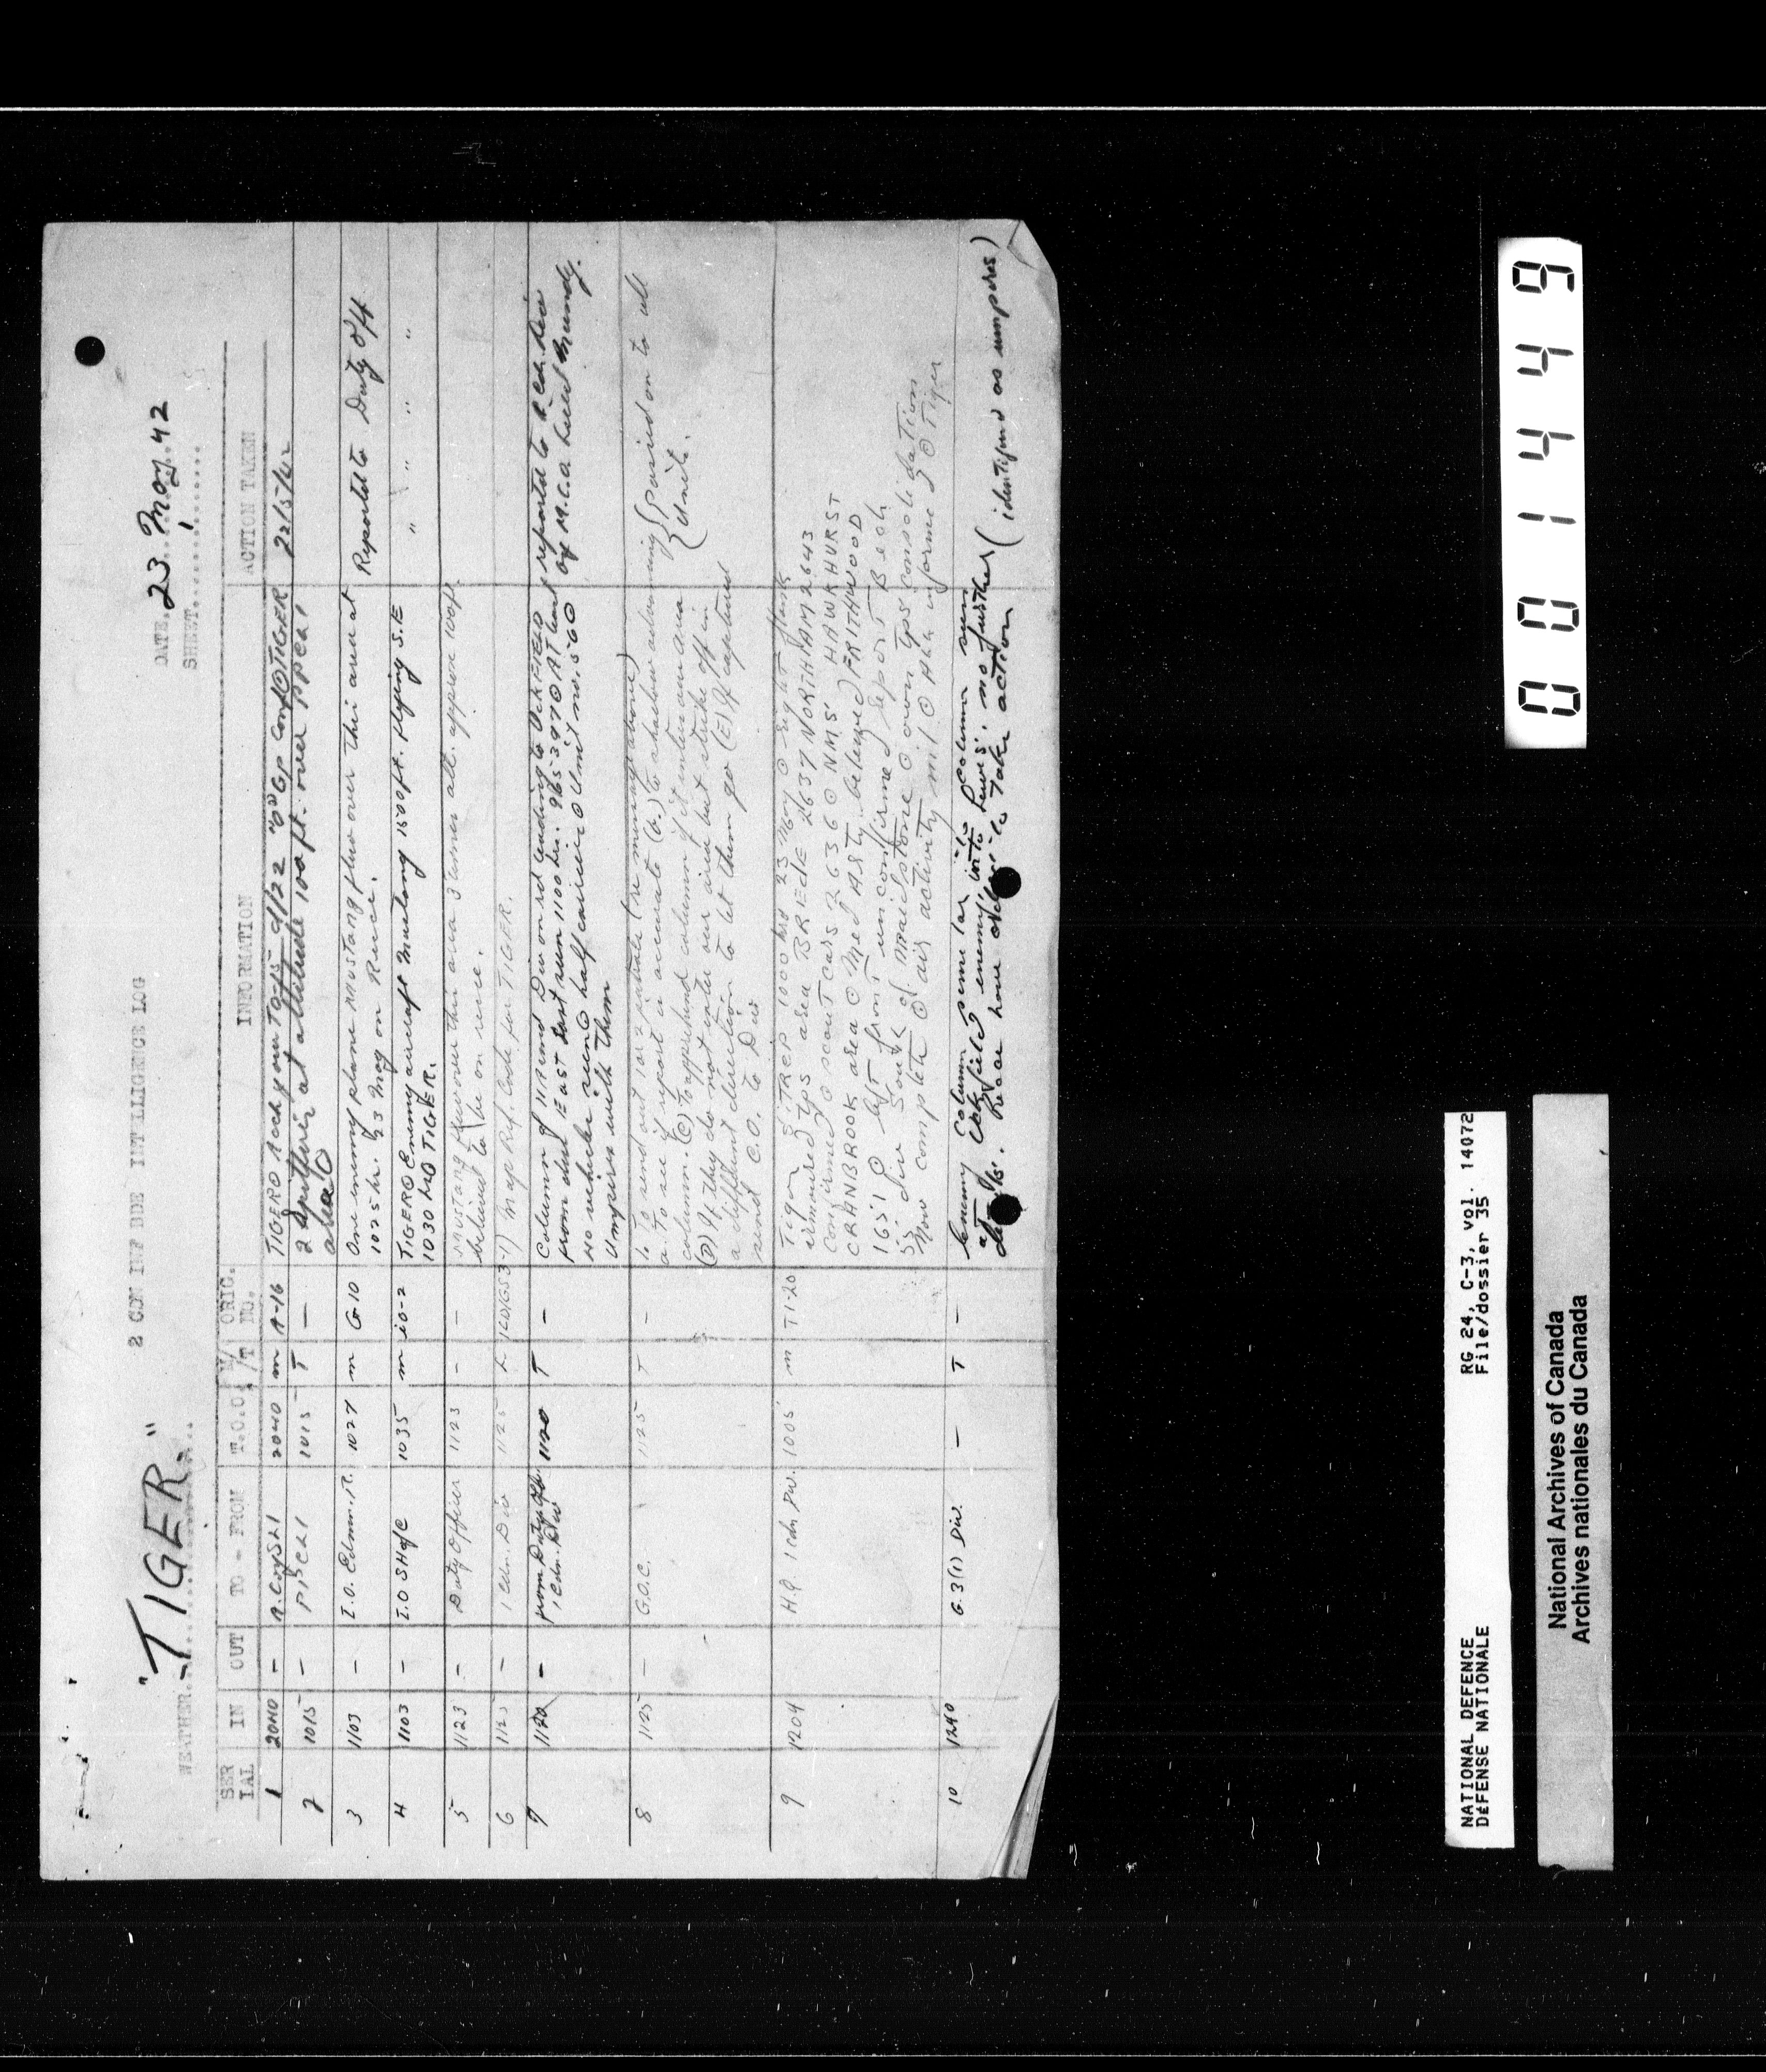 "TIGER"
2 CDN INF BDE INTELLIGENCE LOG
DATE. 23 May 42
WEATHER
SHEET 1
SER IAL IN OUT TO - FROM T.O.O. W/T ORIG. NO. INFORMATION ACTION TAKEN
1 2040 - 2040 m A-16 TIGER O Ack your TO-15 d/22 "O" Gp Conf O TIGER 22/5/42
2 1015 - PPCLI 1015 T — 2 Spitfires at altitude 100 ft. over PPCLI
area O
3 1103 - I.O. Edmn. R. 1027 m G-10 One enemy plane Mustang flew over this area at Reported to Duty Off
1025 hr. 23 May on Recce.
4 1103 - I.O SH of C 1035 m i0-2 TIGER O Enemy aircraft Mustang 1500 ft. flying S.E " " " "
1030 hrs TIGER.
5 1123 - Duty Officer 1123 - - Mustang flew over this area 3 times alt. approx 100 ft.
believed to be on recce.
6 1125 - 1 Cdn. Div 1125 Map Ref. Code for TIGER.
7 1120 - from Duty Off. 1120 T - Column of Div on rd leading to UCKFIELD reported to
1 Cdn. Div from East last seen 1100 hr. 965397 O AT least of
40 vehicles seen O half carriers O Unit no. 560
Umpires with them
8 1125 - G.O.C. 1125 T - To send out 1 or 2 (re message above)
a. To see if report is accurate (b.) to shadow advancing passed on to all
column. (c) To apprehend column if it enters our area Units.
(D) If they do not enter our area but strike off in
a different direction to let them go (E) If captured
send C.O. to Div
9 1204 H.Q. 1 Cdn Div. 1005 m TI-20 Tiger SITREP 1000 hrs 23 May O right flank
armoured tps area BREDE 2637 NORTHIAM 2643
confirmed O scout cars 2636 O NMS' HAWKHURST
CRANBROOK area O Med Arty believed FRITHWOOD
1651 O left front unconfirmed report Bech
55 Div South of Maidstone O own tps consolidation
now complete O air activity nil O All informed O Tiger
10 1240 G.3(1) Div. — T — Enemy column similar to column seen
at Uckfield enemy into Lewes, no further (identified as umpires)
Recce have to take action
0 0 1 4 4 9
NATIONAL DEFENCE RG 24, C-3, vol. 14072
DÉFENSE NATIONALE File/dossier 35
National Archives of Canada
Archives nationales du Canada